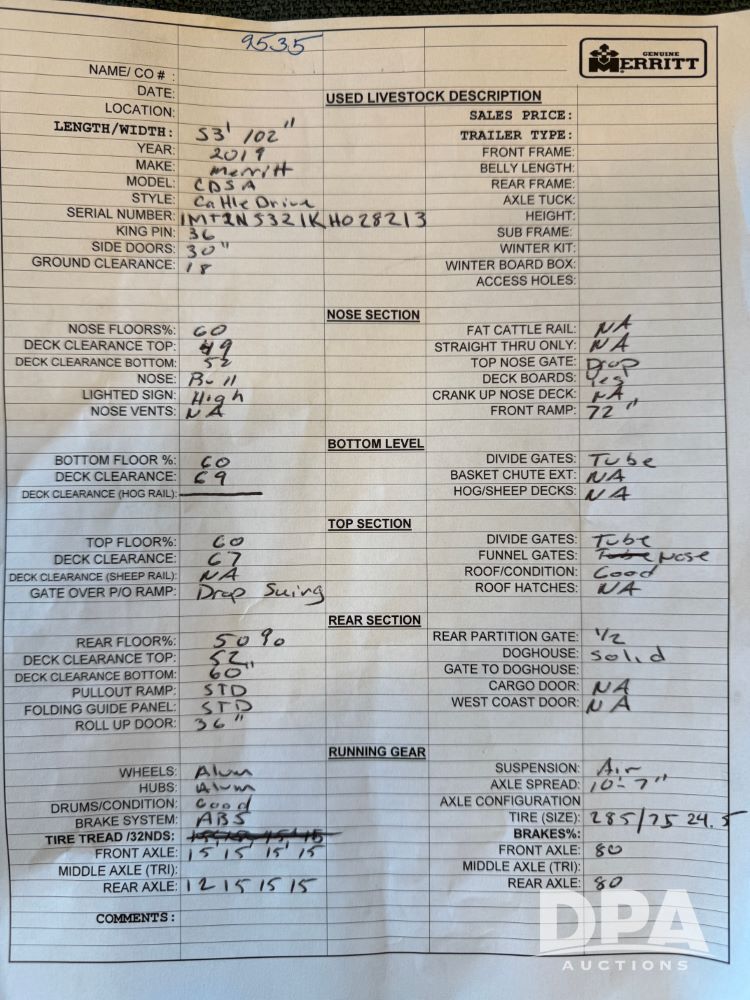 9535
GENUINE
MERRITT
NAME/ CO # :
DATE:
USED LIVESTOCK DESCRIPTION
LOCATION:
SALES PRICE:
LENGTH/WIDTH: 53' /102"
TRAILER TYPE:
YEAR: 2019
FRONT FRAME:
MAKE: Merritt
BELLY LENGTH:
MODEL: CDSA
REAR FRAME:
STYLE: Cattle Drive
AXLE TUCK:
SERIAL NUMBER: 1MT2N5321KH028213
HEIGHT:
KING PIN: 36
SUB FRAME:
SIDE DOORS: 30"
WINTER KIT:
GROUND CLEARANCE: 18
WINTER BOARD BOX:
ACCESS HOLES:
NOSE SECTION
NOSE FLOORS%: 60
FAT CATTLE RAIL: NA
DECK CLEARANCE TOP: 49
STRAIGHT THRU ONLY: NA
DECK CLEARANCE BOTTOM: 52
TOP NOSE GATE: Drop
NOSE: Bull
DECK BOARDS: Yes
LIGHTED SIGN: High
CRANK UP NOSE DECK: NA
NOSE VENTS: NA
FRONT RAMP: 72"
BOTTOM LEVEL
BOTTOM FLOOR %: 60
DIVIDE GATES: Tube
DECK CLEARANCE: 69
BASKET CHUTE EXT: NA
DECK CLEARANCE (HOG RAIL):
HOG/SHEEP DECKS: NA
TOP SECTION
TOP FLOOR%: 60
DIVIDE GATES: Tube
DECK CLEARANCE: 67
FUNNEL GATES: Tube Nose
DECK CLEARANCE (SHEEP RAIL): NA
ROOF/CONDITION: Good
GATE OVER P/O RAMP: Drop Swing
ROOF HATCHES: NA
REAR SECTION
REAR FLOOR%: 50%
REAR PARTITION GATE: 1/2
DECK CLEARANCE TOP: 52
DOGHOUSE: Solid
DECK CLEARANCE BOTTOM: 60"
GATE TO DOGHOUSE:
PULLOUT RAMP: STD
CARGO DOOR: NA
FOLDING GUIDE PANEL: STD
WEST COAST DOOR: NA
ROLL UP DOOR: 36"
RUNNING GEAR
WHEELS: Alum
SUSPENSION: Air
HUBS: Alum
AXLE SPREAD: 10'-7"
DRUMS/CONDITION: Good
AXLE CONFIGURATION
BRAKE SYSTEM: ABS
TIRE (SIZE): 285/75 24.5
TIRE TREAD /32NDS:
BRAKES%:
FRONT AXLE: 15 15 15 15
FRONT AXLE: 80
MIDDLE AXLE (TRI):
MIDDLE AXLE (TRI):
REAR AXLE: 12 15 15 15
REAR AXLE: 80
COMMENTS:
DPA
AUCTIONS